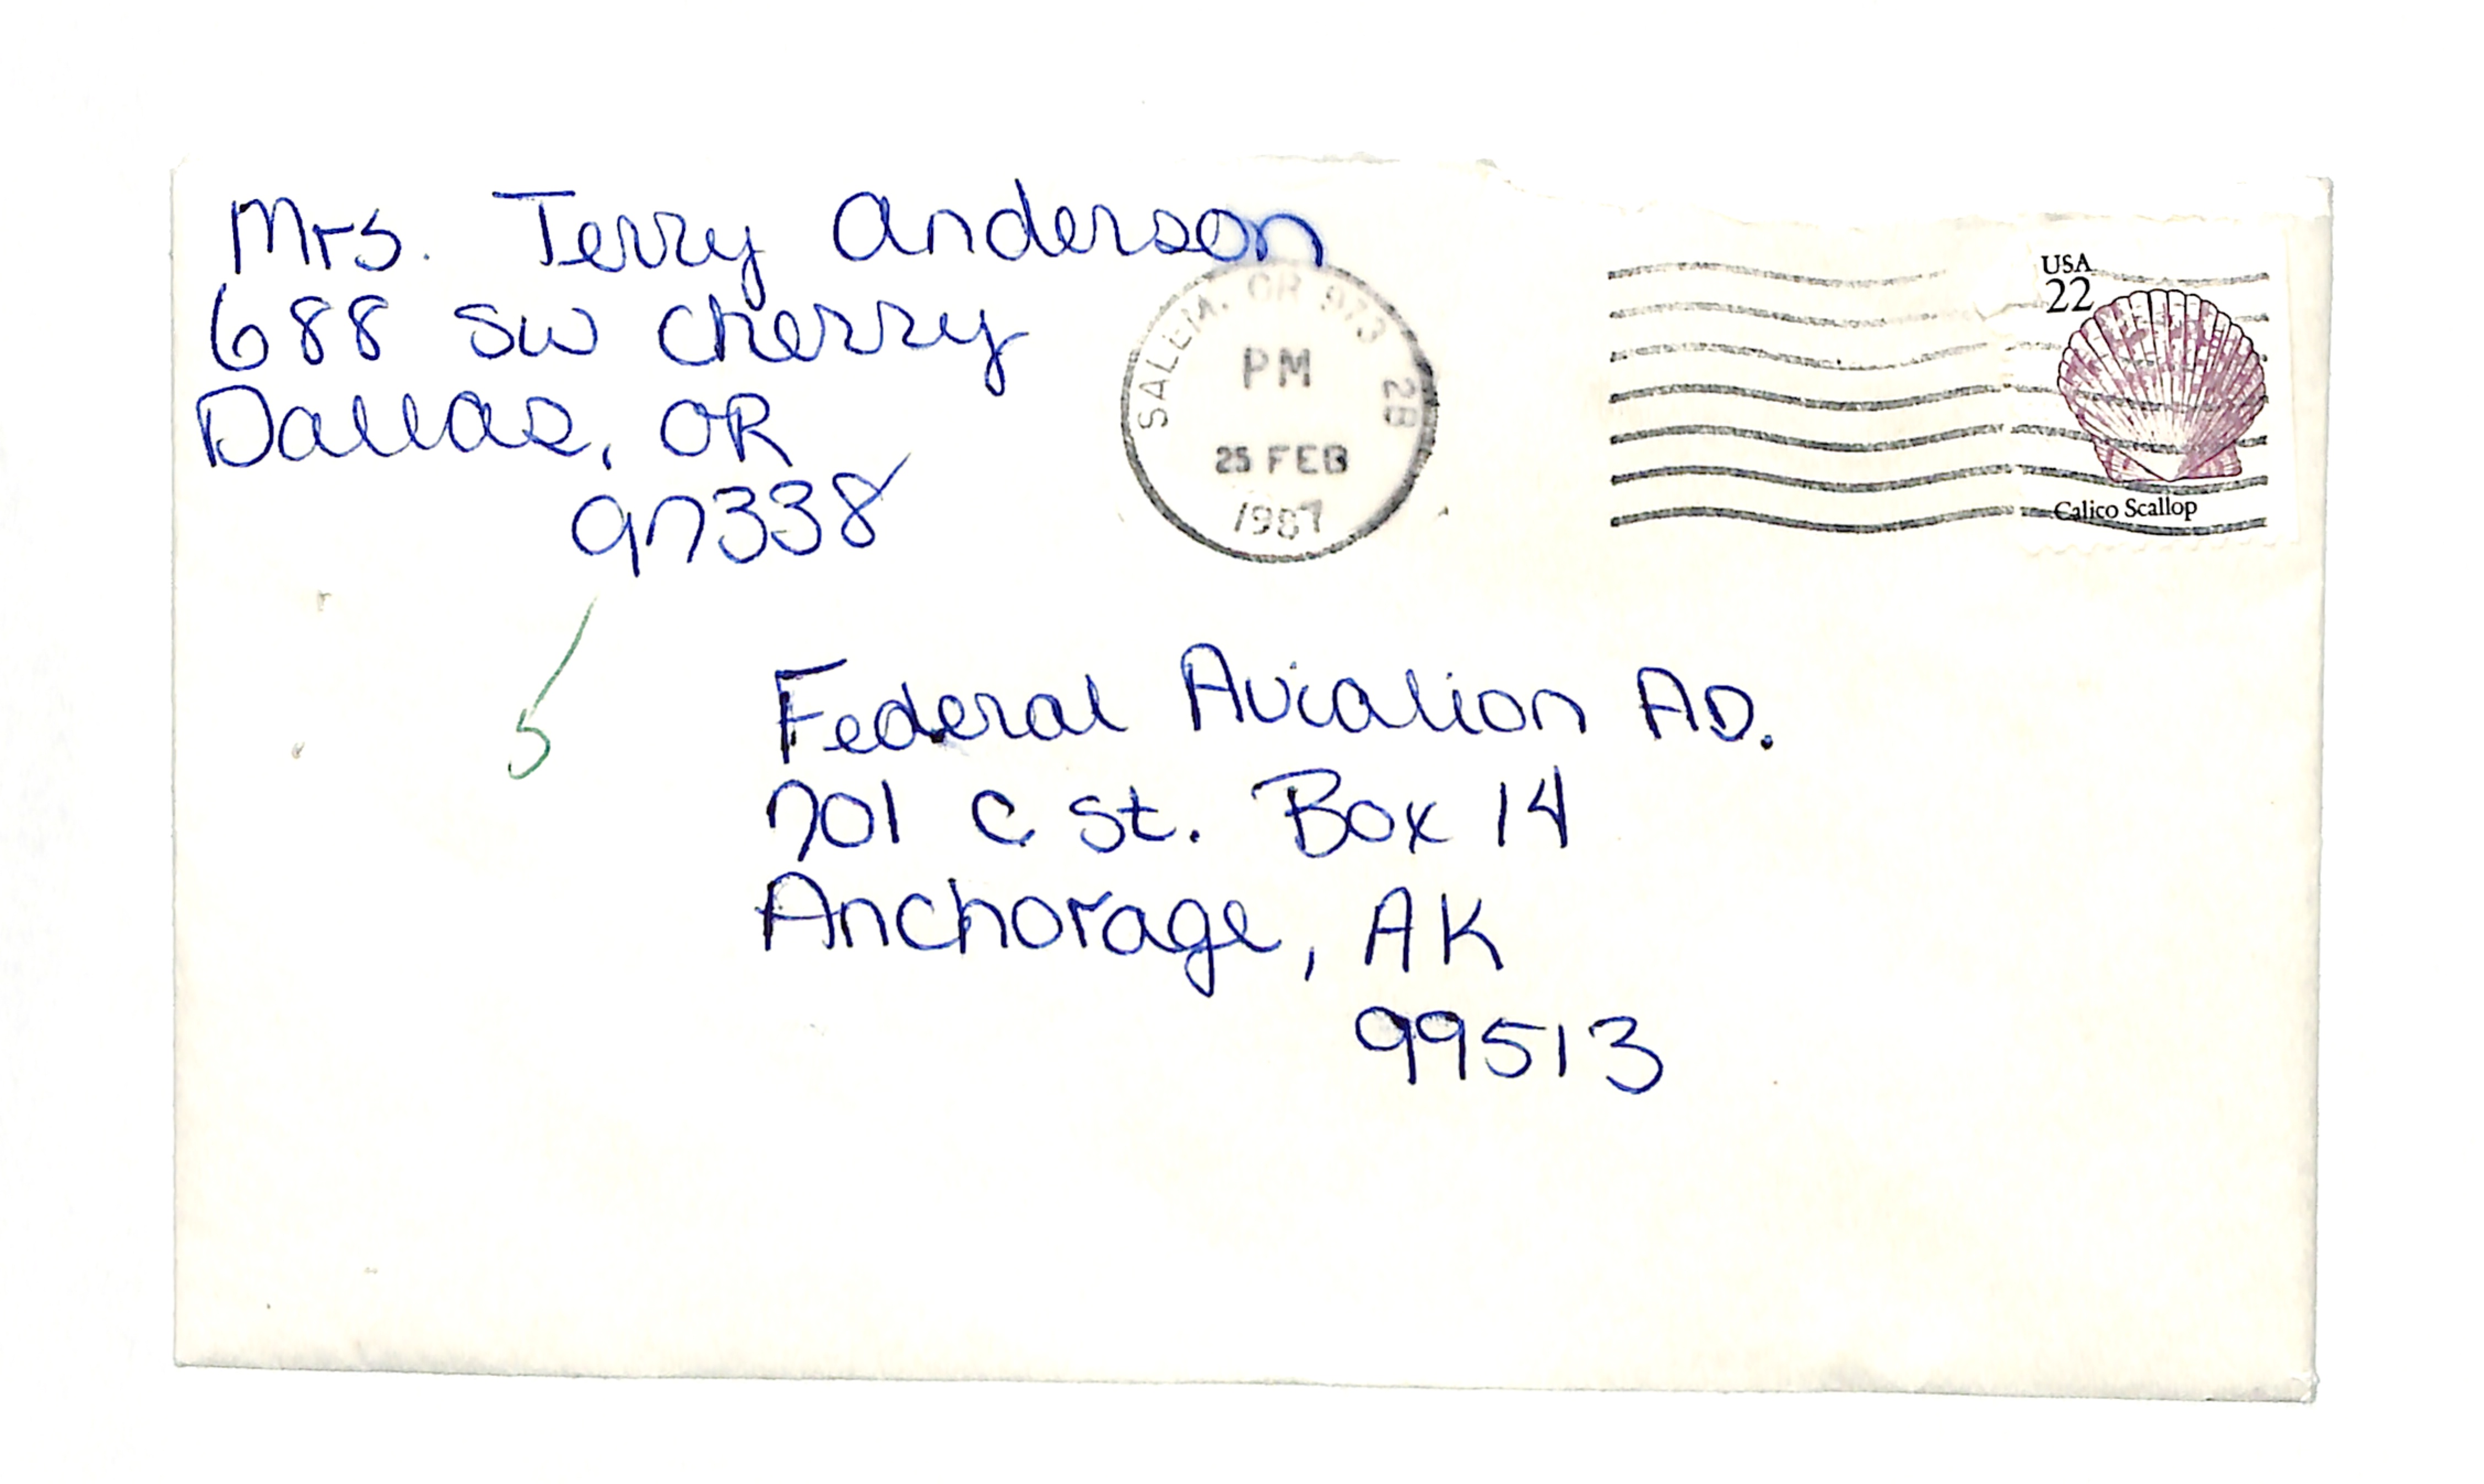 Mrs. Terry Anderson
688 SW Cherry
Dallas, OR
97338
SALEM, OR 973 2B
PM
25 FEB
1987
USA
22
Calico Scallop
5
Federal Aviation AD.
701 C St. Box 14
Anchorage, AK
99513